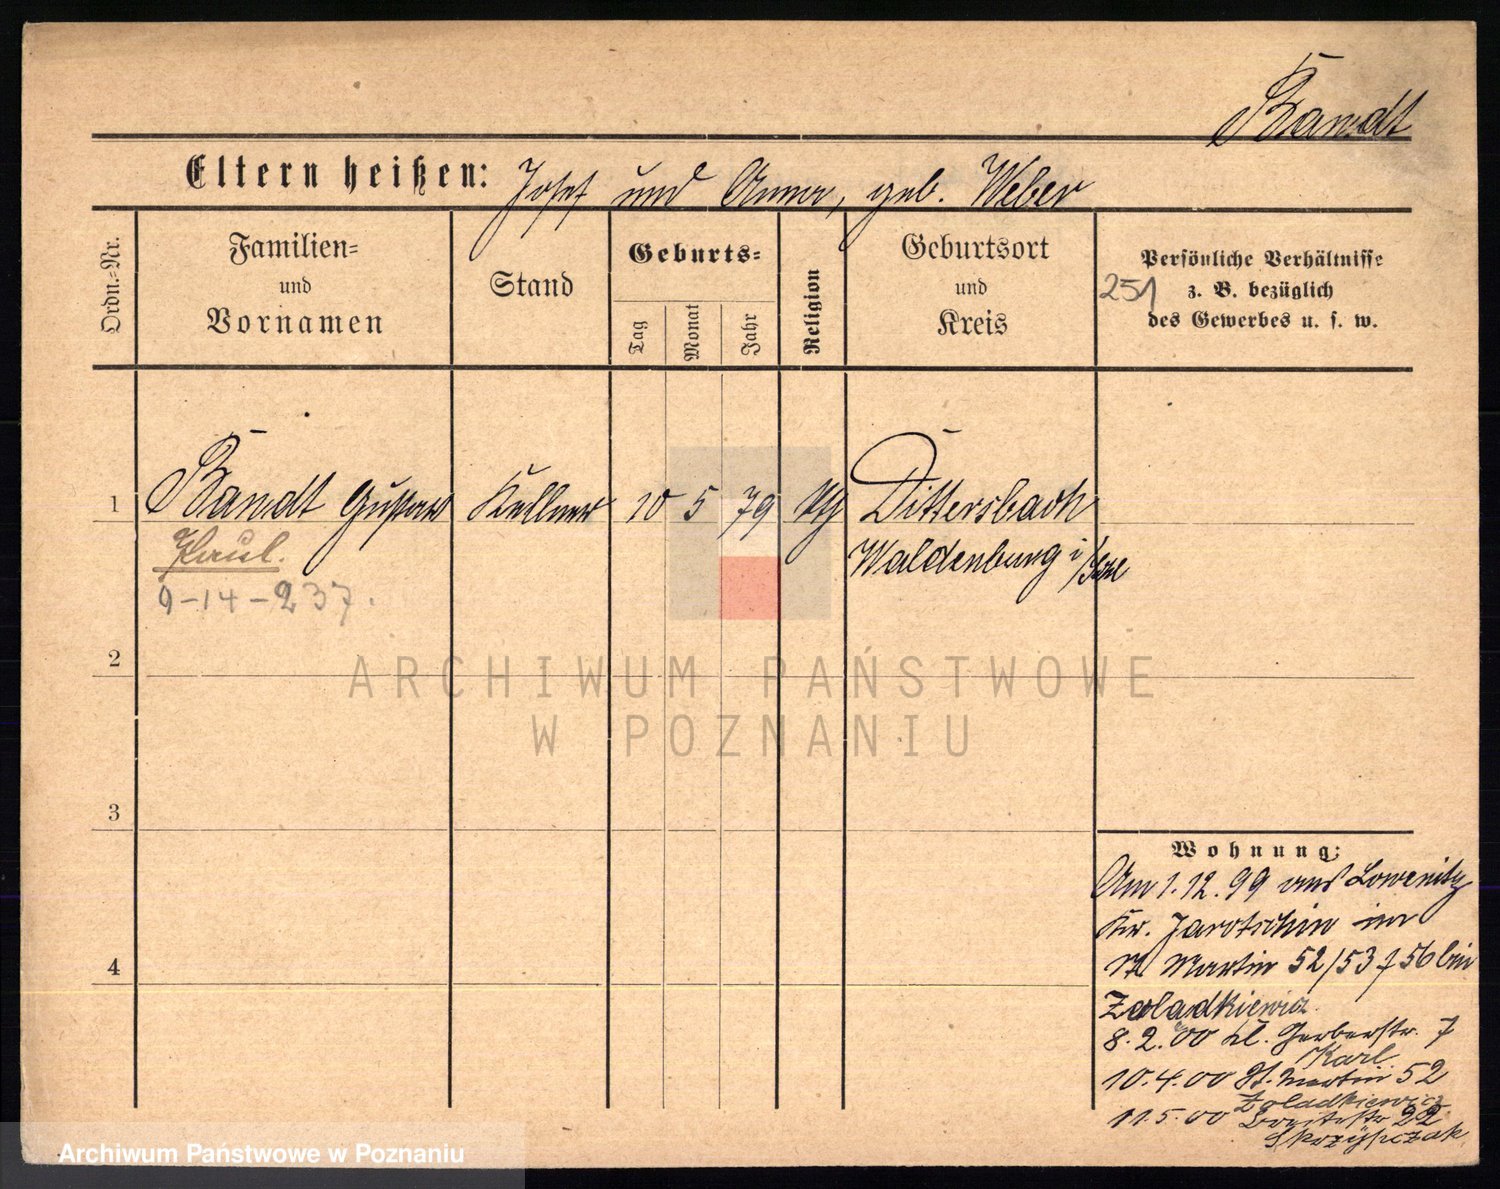 Brandt
Eltern heißen: Josef und Anna, geb. Weber
Ordn.-Nr.
Familien-
und
Vornamen
Stand
Geburts-
Tag
Monat
Jahr
Religion
Geburtsort
und
Kreis
Persönliche Verhältnisse
251 z. B. bezüglich
des Gewerbes u. s. w.
1 Brandt Gustav Kellner 10 5 79 Dittersbach
Paul. Waldenburg i/Schl
9-14-237.
2
3
4
ARCHIWUM PAŃSTWOWE
W POZNANIU
Wohnung:
Am 1.12.99 aus
Kr. Jarotschin in
St Martin 52/53 56 bei
Zoladkiewicz.
8.2.00 Kl. Gerberstr. 7
Karl
10.4.00 St. Martin 52
Zoladkiewicz
11.5.00 22
Skrzypczak
Archiwum Państwowe w Poznaniu